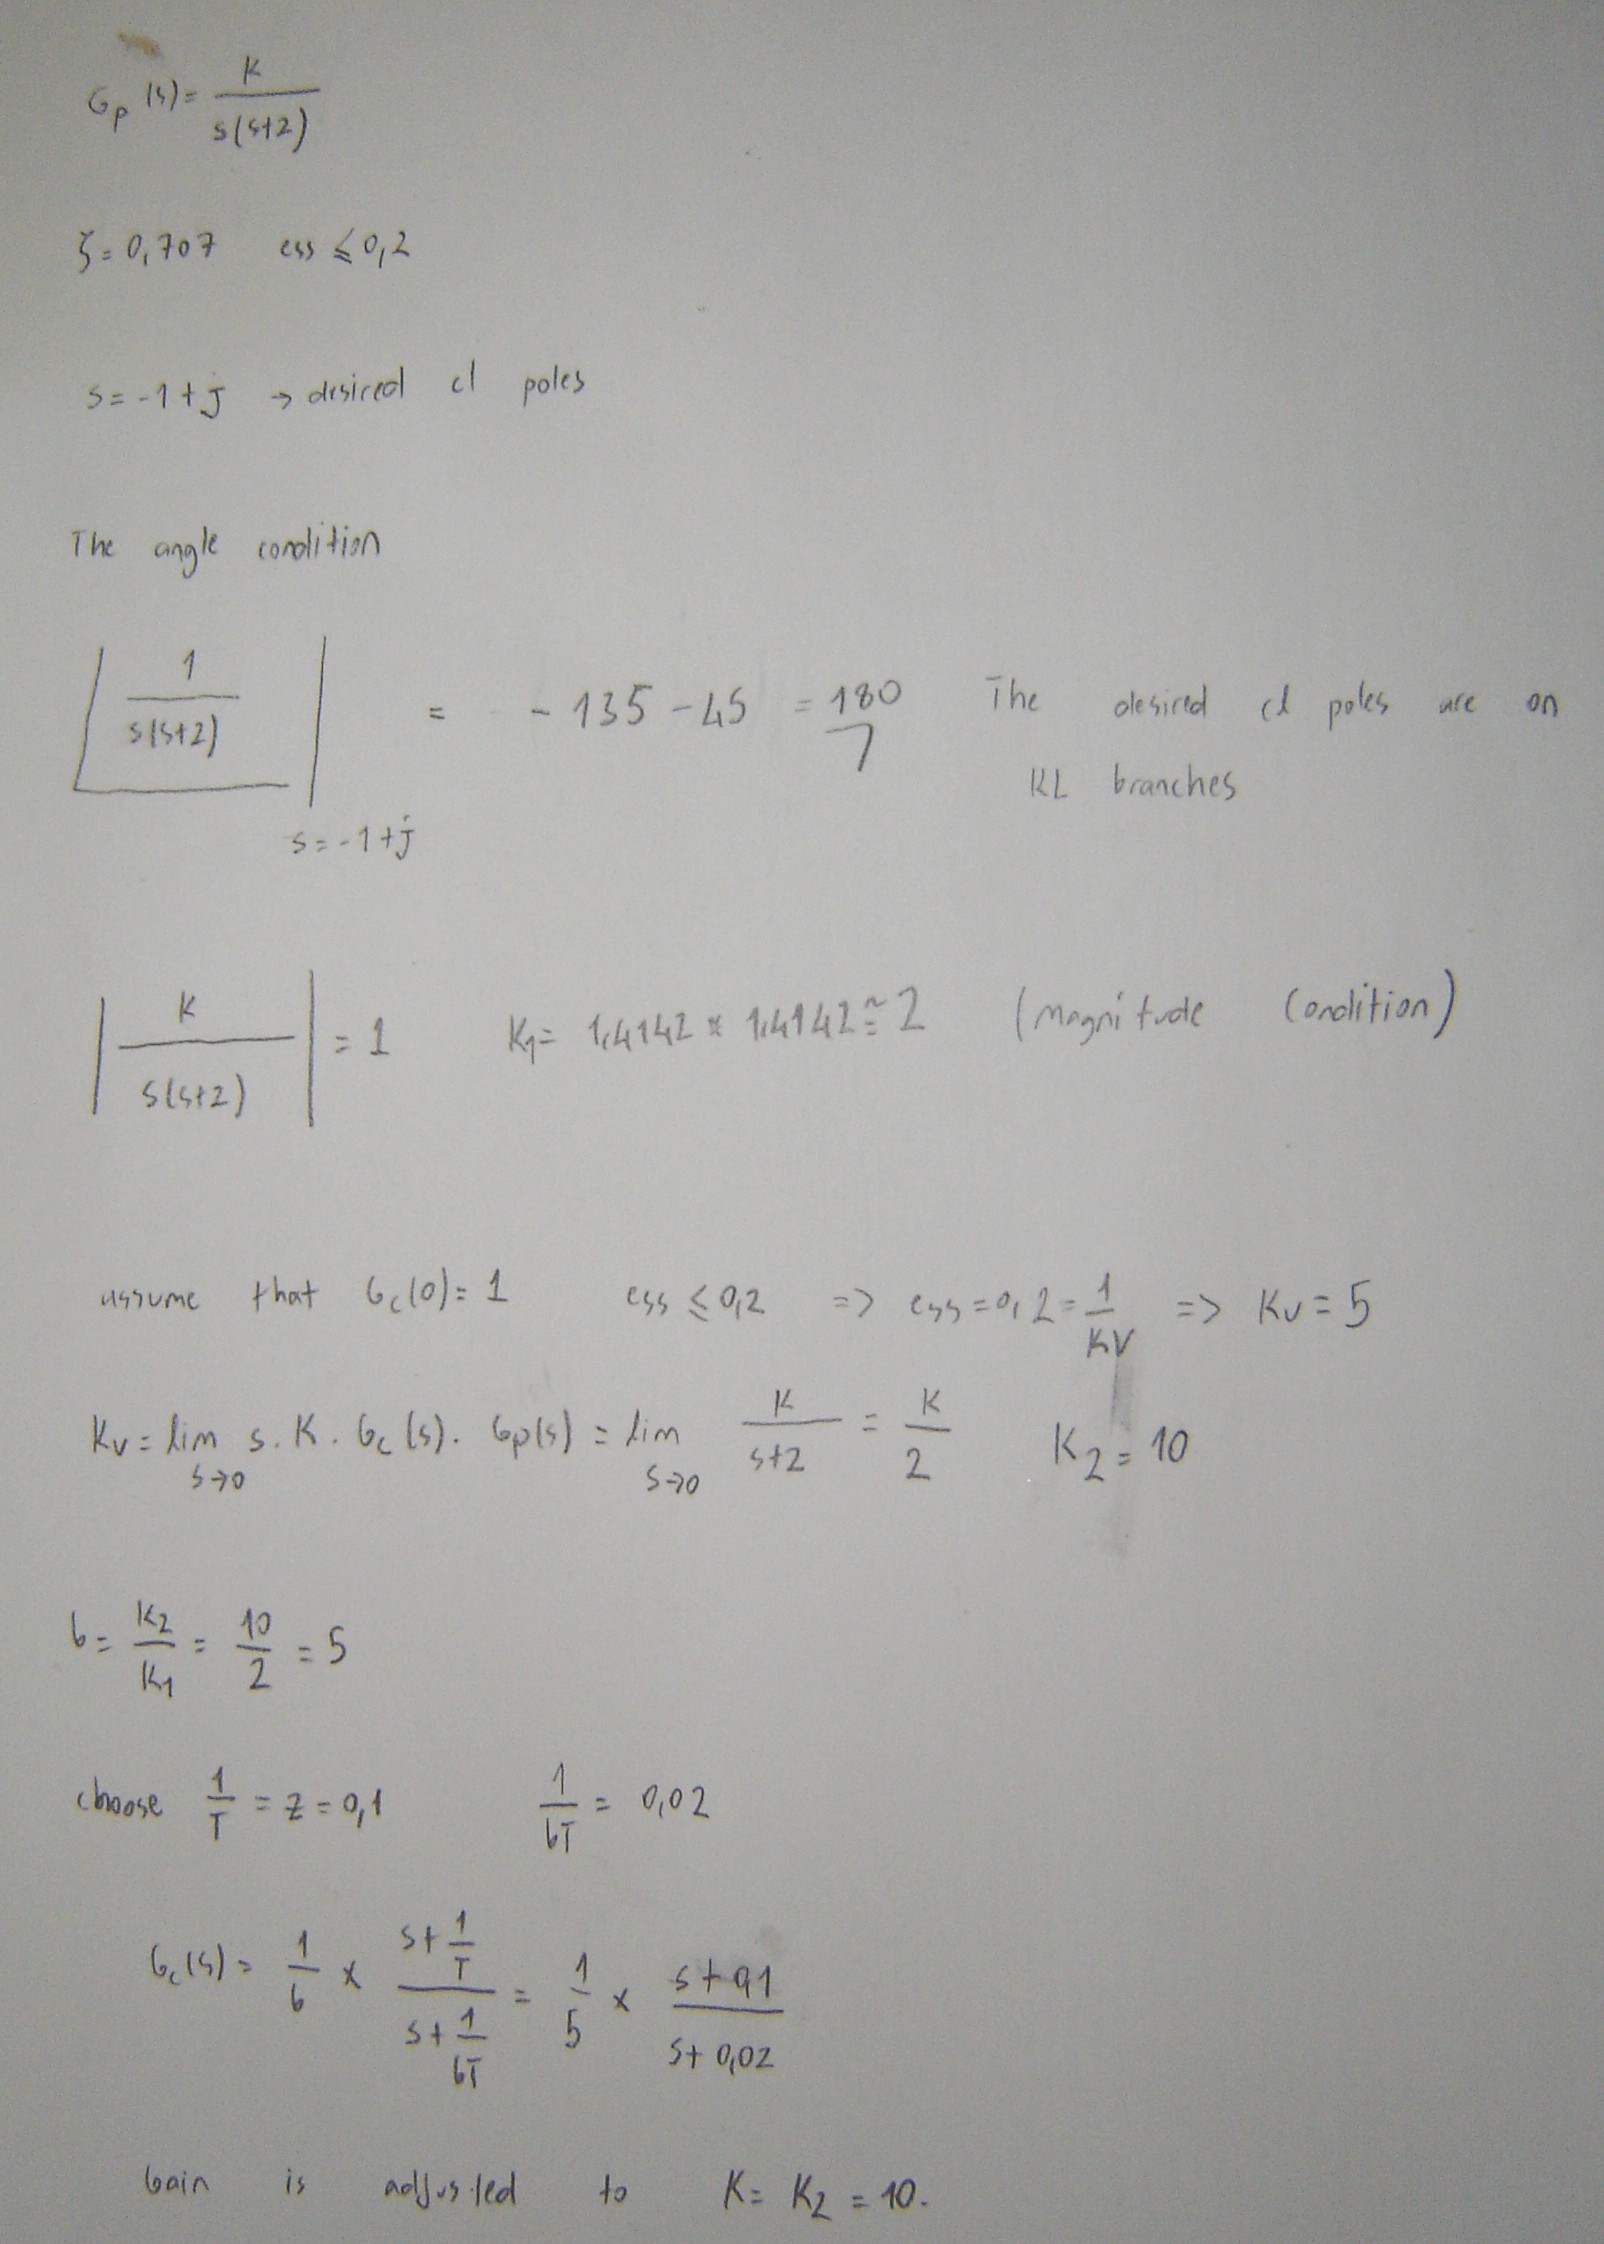 Gp(s) = K / s(s+2)
ζ = 0,707 ess ≤ 0,2
s = -1+j → desired cl poles
The angle condition
∠ 1 / s(s+2) | s = -1+j = -135 - 45 = 180 The desired cl poles are on
RL branches
| K / s(s+2) | = 1 K1 = 1,4142 * 1,4142 ≅ 2 (Magnitude Condition)
assume that Gc(0) = 1 ess ≤ 0,2 => ess = 0,2 = 1/KV => Kv = 5
Kv = lim s→0 s. K. Gc(s). Gp(s) = lim s→0 K / s+2 = K/2 K2 = 10
b = K2/K1 = 10/2 = 5
choose 1/T = z = 0,1 1/bT = 0,02
Gc(s) = 1/b x (s + 1/T) / (s + 1/bT) = 1/5 x (s + 0,1) / (s + 0,02)
Gain is adjusted to K = K2 = 10.